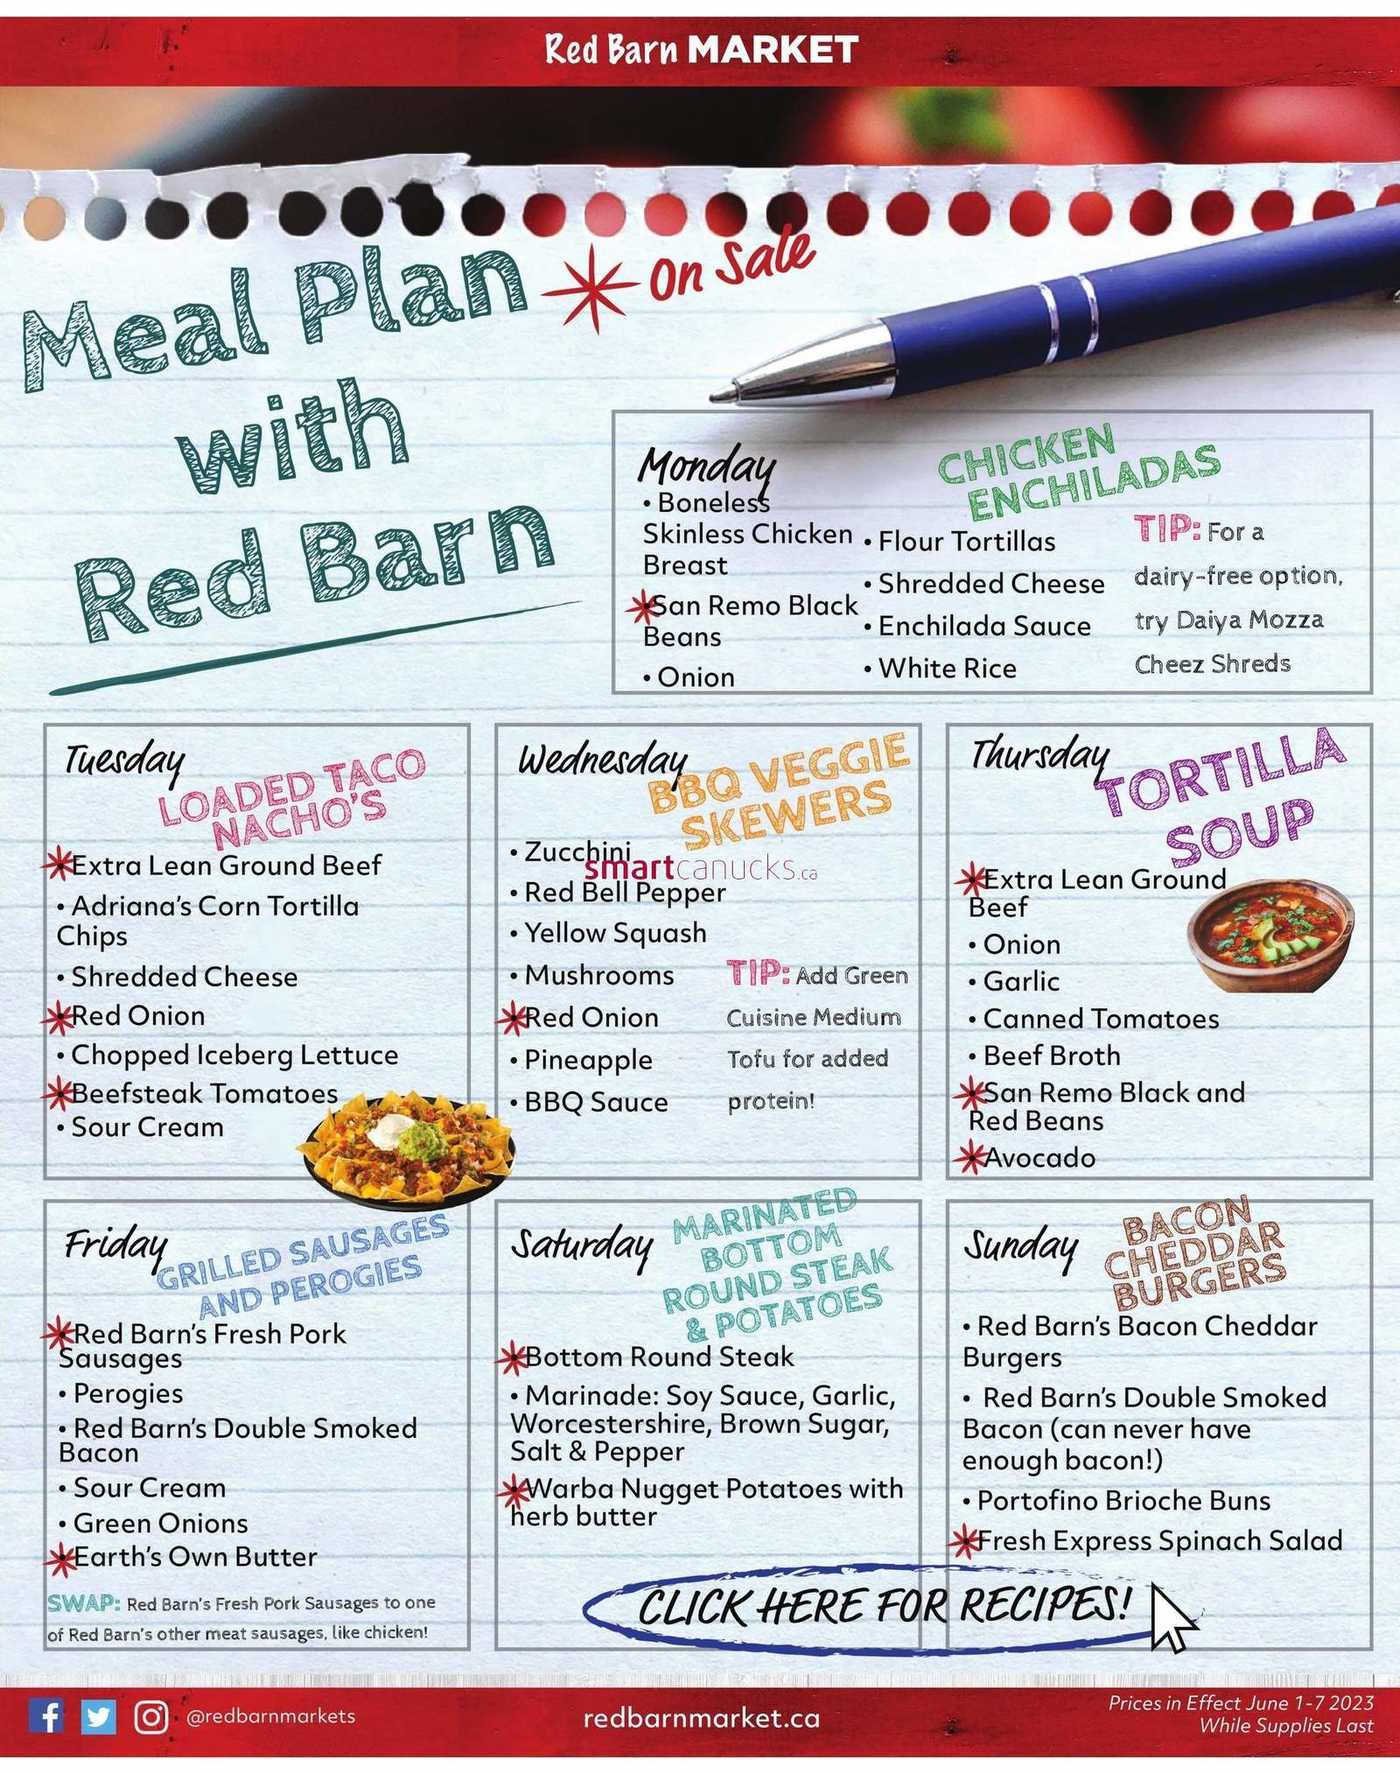 Red Barn MARKET
Meal Plan
with
Red Barn
On Sale
Monday
CHICKEN
ENCHILADAS
• Boneless
Skinless Chicken
Breast
•San Remo Black
Beans
• Onion
• Flour Tortillas
• Shredded Cheese
• Enchilada Sauce
• White Rice
TIP: For a
dairy-free option,
try Daiya Mozza
Cheez Shreds
Tuesday
LOADED TACO
NACHO'S
•Extra Lean Ground Beef
• Adriana's Corn Tortilla
Chips
• Shredded Cheese
•Red Onion
• Chopped Iceberg Lettuce
•Beefsteak Tomatoes
• Sour Cream
Wednesday
BBQ VEGGIE
SKEWERS
• Zucchini
smartcanucks.ca
• Red Bell Pepper
• Yellow Squash
• Mushrooms
•Red Onion
• Pineapple
• BBQ Sauce
TIP: Add Green
Cuisine Medium
Tofu for added
protein!
Thursday
TORTILLA
SOUP
•Extra Lean Ground
Beef
• Onion
• Garlic
• Canned Tomatoes
• Beef Broth
•San Remo Black and
Red Beans
•Avocado
Friday
GRILLED SAUSAGES
AND PEROGIES
•Red Barn's Fresh Pork
Sausages
• Perogies
• Red Barn's Double Smoked
Bacon
• Sour Cream
• Green Onions
•Earth's Own Butter
SWAP: Red Barn's Fresh Pork Sausages to one
of Red Barn's other meat sausages, like chicken!
Saturday
MARINATED
BOTTOM
ROUND STEAK
& POTATOES
•Bottom Round Steak
• Marinade: Soy Sauce, Garlic,
Worcestershire, Brown Sugar,
Salt & Pepper
•Warba Nugget Potatoes with
herb butter
Sunday
BACON
CHEDDAR
BURGERS
• Red Barn's Bacon Cheddar
Burgers
• Red Barn's Double Smoked
Bacon (can never have
enough bacon!)
• Portofino Brioche Buns
•Fresh Express Spinach Salad
CLICK HERE FOR RECIPES!
@redbarnmarkets
redbarnmarket.ca
Prices in Effect June 1-7 2023
While Supplies Last